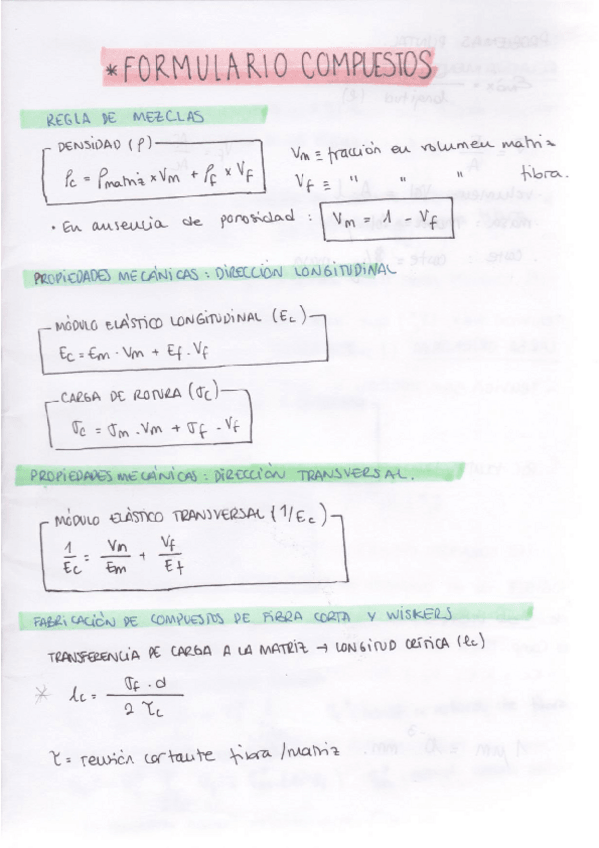 *FORMULARIO COMPUESTOS
REGLA DE MEZCLAS
DENSIDAD (ρ)
ρc = ρmatriz × Vm + ρf × Vf
Vm ≡ fracción en volumen matriz
Vf ≡ " " " fibra.
· En ausencia de porosidad : Vm = 1 - Vf
PROPIEDADES MECÁNICAS: DIRECCIÓN LONGITUDINAL
MÓDULO ELÁSTICO LONGITUDINAL (Ec)
Ec = Em · Vm + Ef · Vf
CARGA DE ROTURA (σc)
σc = σm · Vm + σf · Vf
PROPIEDADES MECÁNICAS: DIRECCIÓN TRANSVERSAL.
MÓDULO ELÁSTICO TRANSVERSAL (1/Ec)
1/Ec = Vm/Em + Vf/Ef
FABRICACIÓN DE COMPUESTOS DE FIBRA CORTA Y WISKERS
TRANSFERENCIA DE CARGA A LA MATRIZ → LONGITUD CRÍTICA (lc)
* lc = σf · d / 2 τc
τ = tensión cortante fibra/matriz